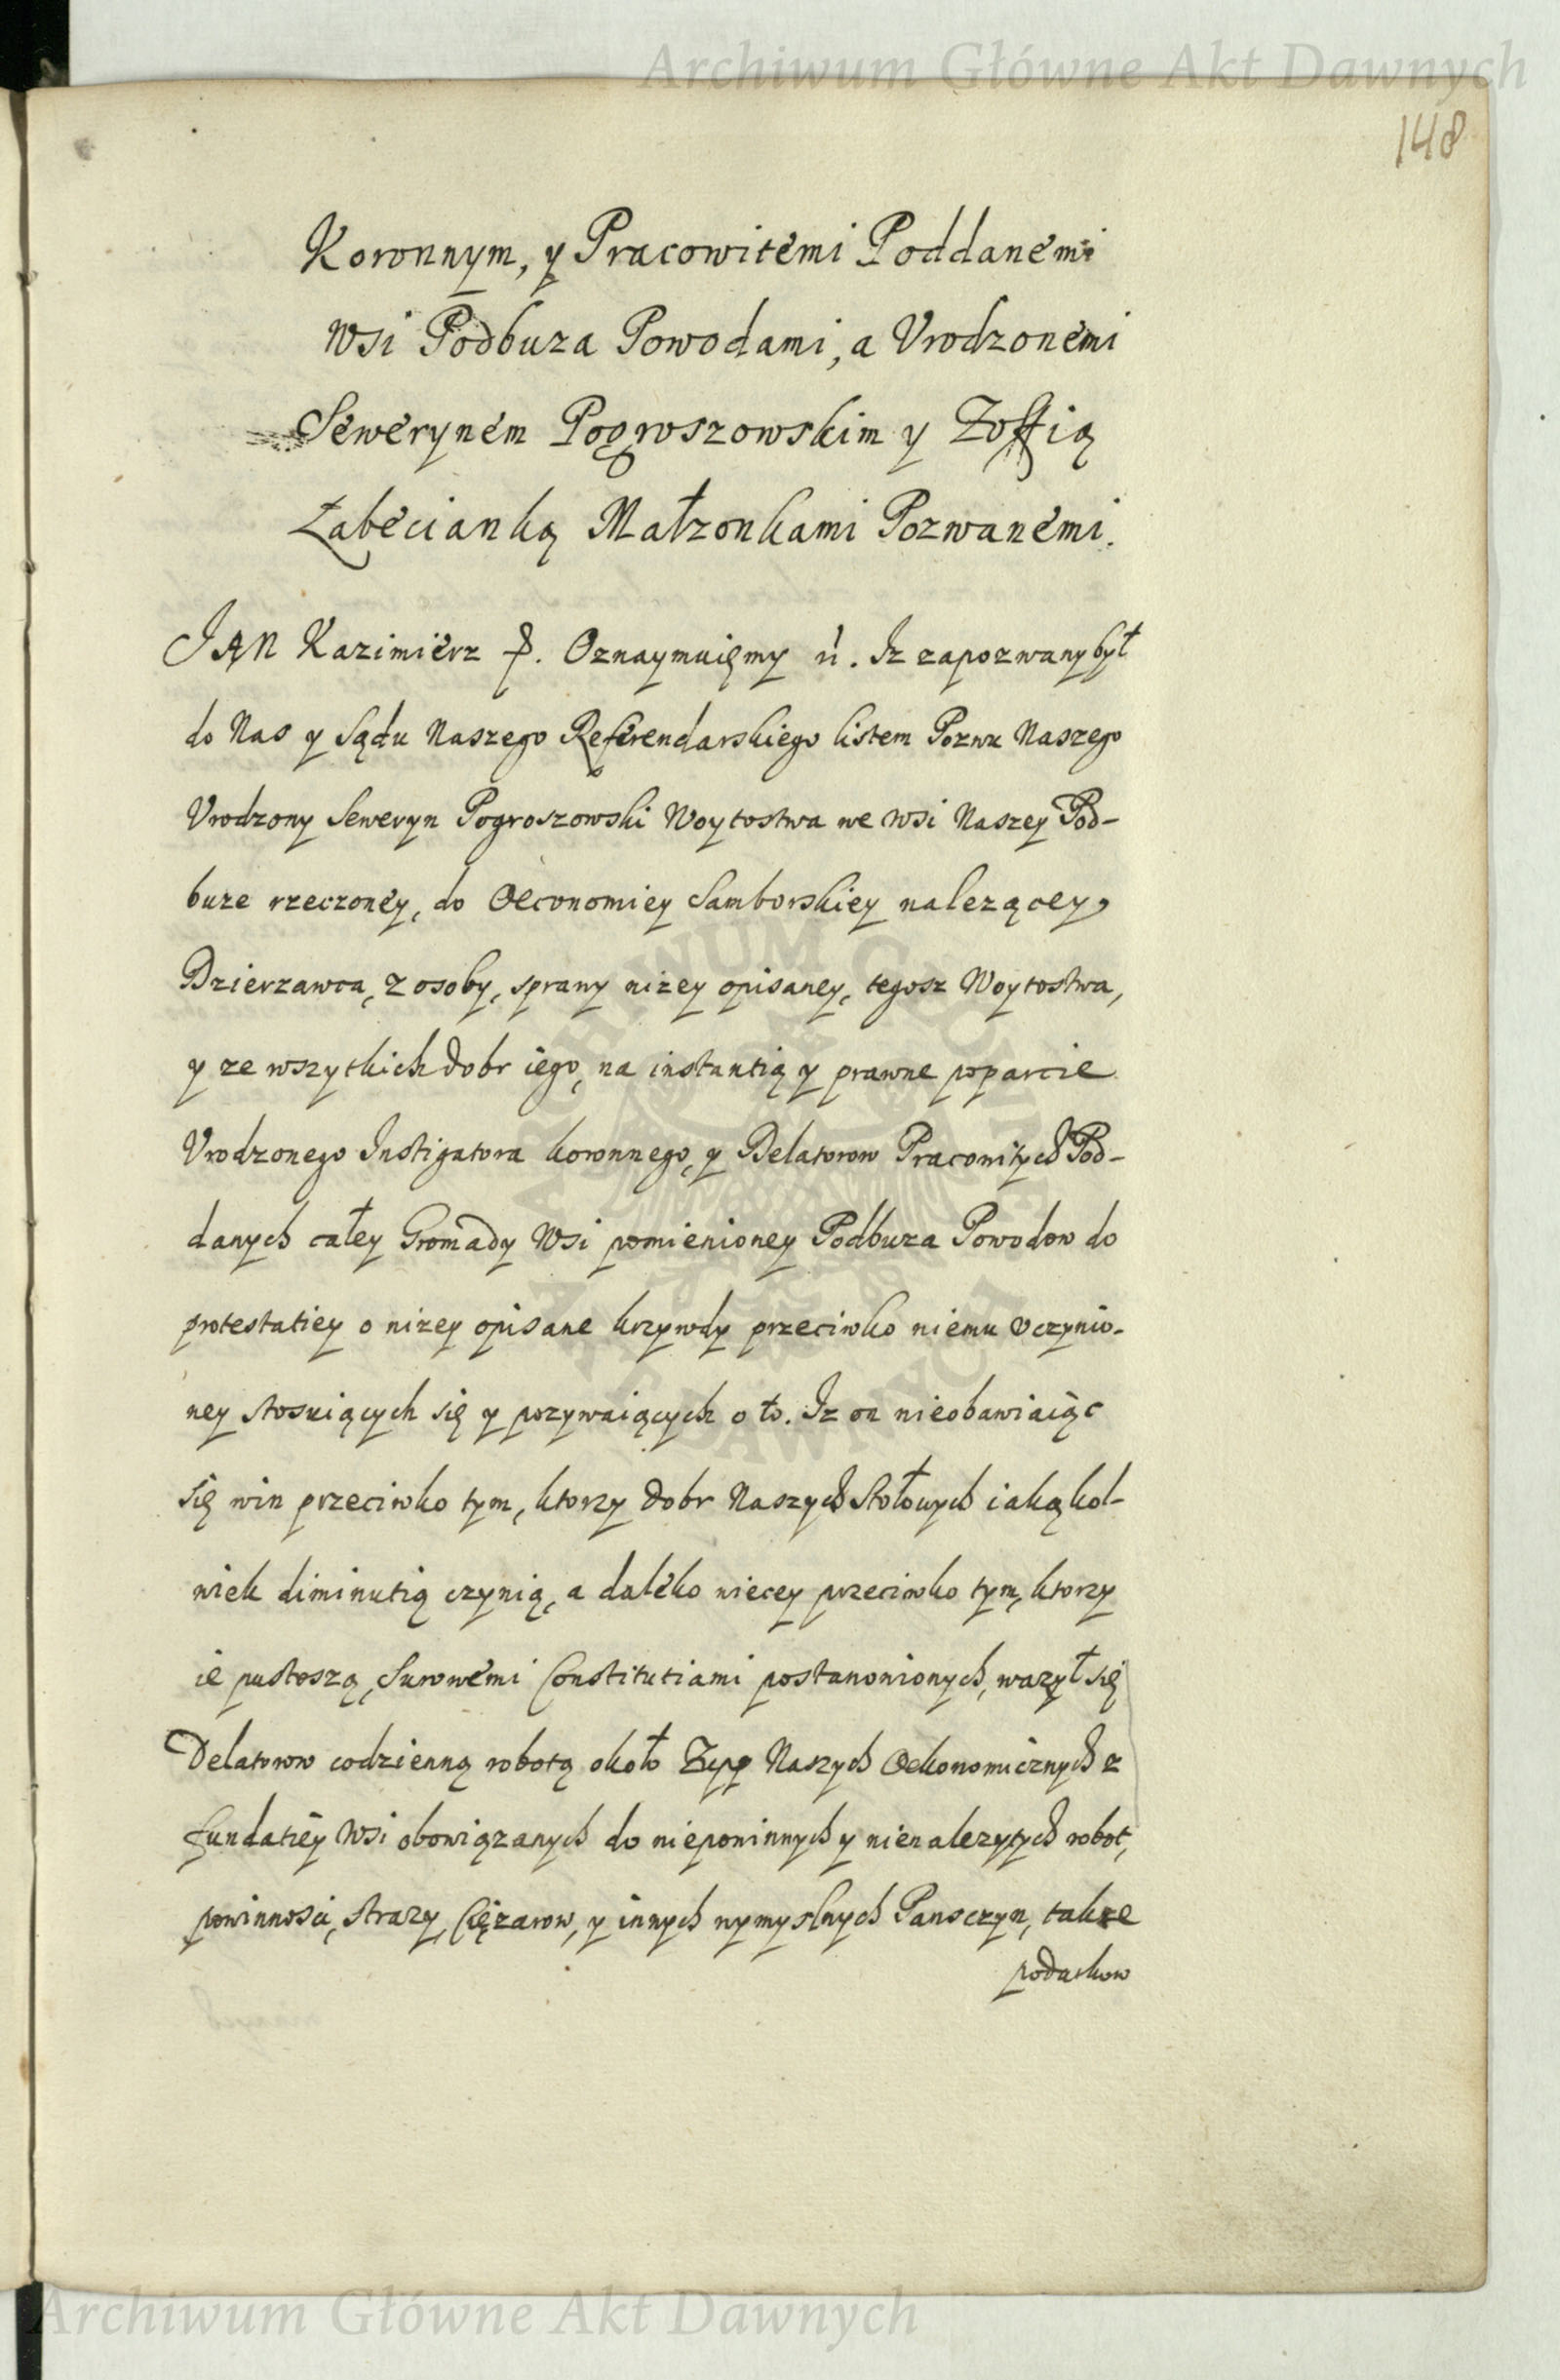 Archiwum Główne Akt Dawnych
148
Koronnym, y Pracowitemi Poddanemi
Wsi Podbuza Powodami, a Vrodzonemi
Sewerynem Pogroszowskim y Zoffią
Łabecianką Małzonkami Pozwanemi.
JAN Kazimierz Oznaymuięmy Iz zapozwany był
do Nas y Sądu Naszego Referendarskiego listem Pozwu Naszego
Vrodzony Seweryn Pogroszowski Woytostwa we Wsi Naszey Pod-
buze rzeczoney, do Oeconomiey Samborskiey nalezącey,
Dzierzawca, z osoby, sprawy nizey opisaney, tegosz Woytostwa,
y ze wszytkich dobr iego, na instantią y prawne poparcie
Vrodzonego Instigatora koronnego, y Delatorow Pracowitych Pod-
danych całey Gromady Wsi pomienioney Podbuza Powodow do
protestatiey o nizey opisane krzywdy przeciwko niemu vczynio-
ney stosuiących się y pozywaiących o to. Iz on nieobawiaiąc
się win przeciwko tym, ktorzy dobr Naszych Stołowych iakąkol-
wiek diminutią czynią, a daleko wiecey przeciwko tym, ktorzy
ie pustoszą, surowemi Constitutiami postanowionych, wazył się
Delatorow codzienną robotą około Zup Naszych Oekonomicznych z
fundatiey Wsi obowiązanych do niepowinnych y nienalezytych robot,
powinnosci, strazy, Ciężarow, y innych wymyslnych Panszczyn, takze
podatkow
ARCHIWUM GŁÓWNE
AKT DAWNYCH
Archiwum Główne Akt Dawnych